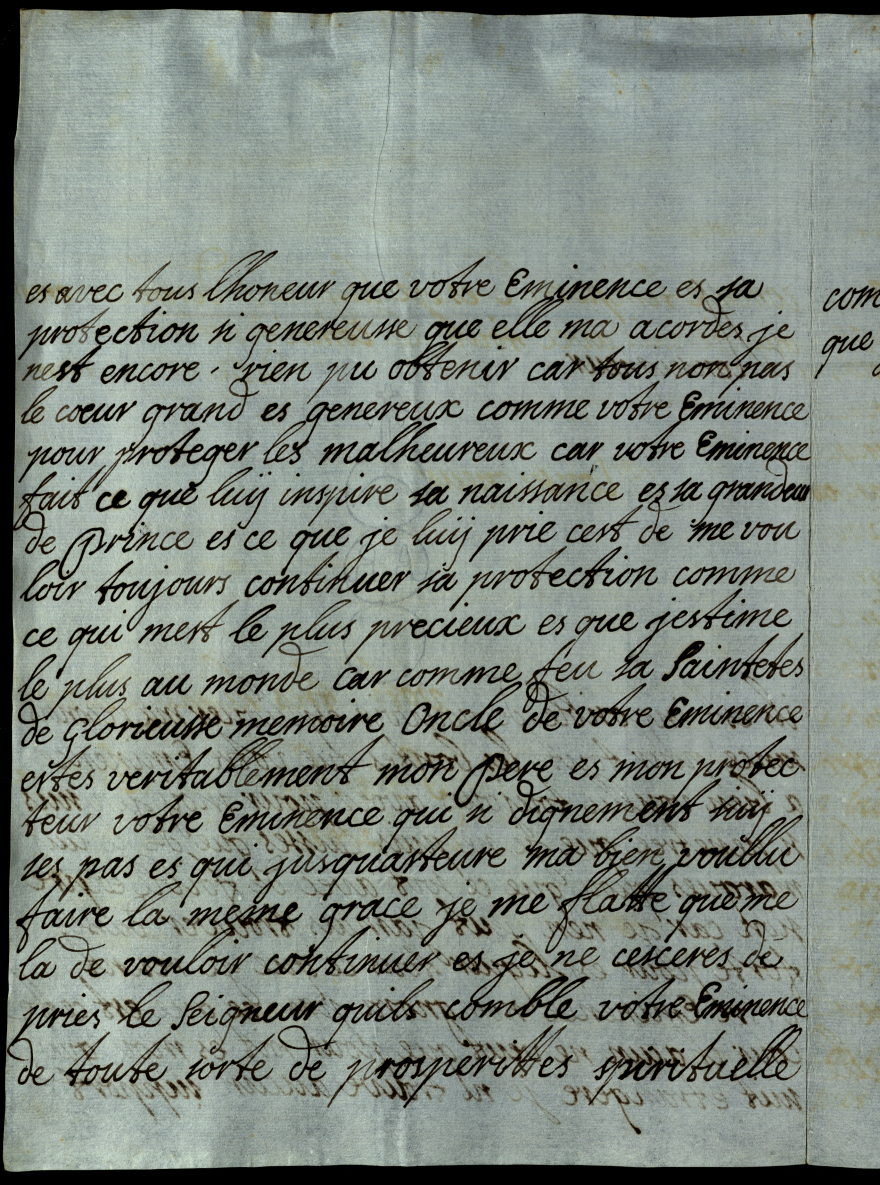 es avec tous lhoneur que votre Eminence es sa
protection si genereusse que elle ma acordes je
nest encore rien pu obtenir car tous non pas
le cœur grand es genereux comme votre Eminence
pour proteger les malheureux car votre Eminence
fait ce que luij inspire sa naissance es sa grandeur
de prince es ce que je luij prie cest de me vou
loir toujours continuer sa protection comme
ce qui mest le plus precieux es que jestime
le plus au monde car comme feu sa Saintetes
de Glorieusse memoire Oncle de votre Eminence
estes veritablement mon pere es mon protec
teur votre Eminence qui si dignement suij
ses pas es qui jusquasteure ma bien voullu
faire la mesme grace je me flatte que me
la de vouloir continuer es je ne cesceres de
pries le Seigneur quils comble votre Eminence
de toute sorte de prosperittes spirituelle
com
que